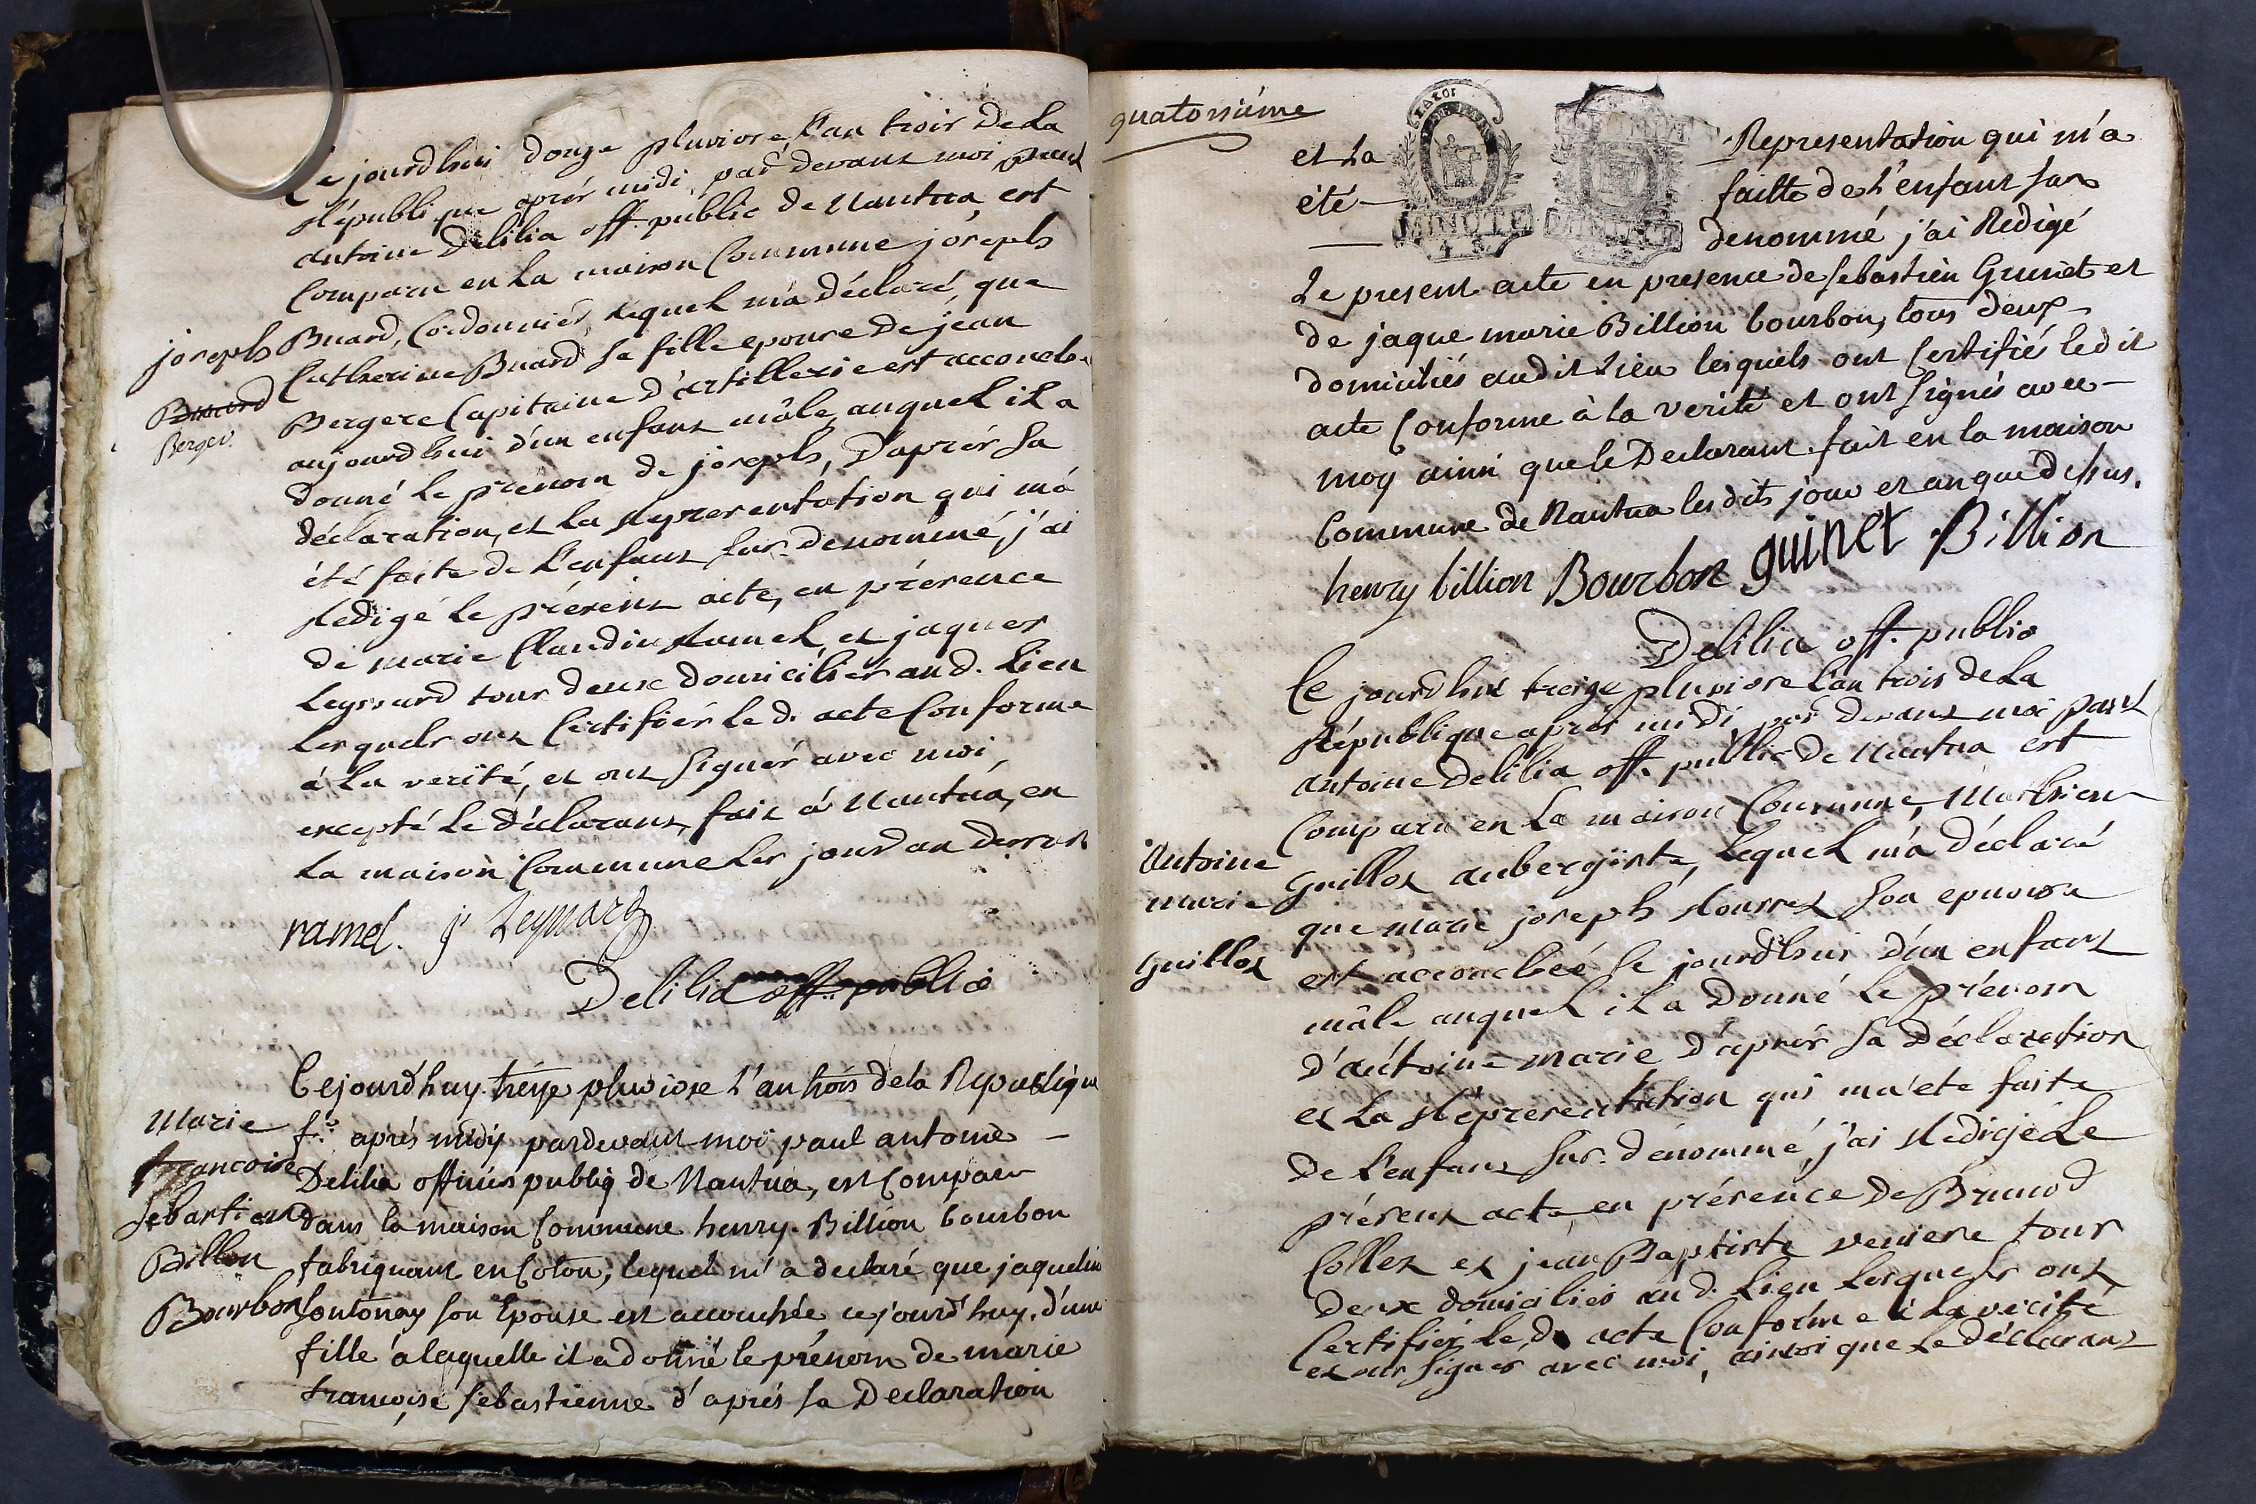 Ce jourdhui douze pluviose, L'an trois De La
République après midi, par devant moi paul
antoine Delilia off. public de Nantua est
Comparu en La maison Commune joseph
joseph
Buard
Berger.
Buard, Cordonnier, Lequel m'a déclaré, que
Catherine Buard Sa fille epouse De jean
Bergere Capitaine D'artillerie est accouchée
aujourdhui d'un enfant mâle, auquel il a
donné Le prénom de joseph, D'après Sa
déclaration, et La Representation qui m'a
été faite de L'enfant Sur-denommé, j'ai
Redigé le présent acte, en présence
de marie Claudin Ramel, et jaques
Leyssard tous deux domiciliés aud. Lieu
Lesquels ont Certifiés Le d. acte Conforme
à La verité, et ont Signés avec moi,
excepté Le déclarant, fait à Nantua, en
La maison Commune Les jour d an dessus
ramel. j. Leyssard
Delilia off. public
Marie
francoise
Sebastienne
Billion
Bourbon
Cejourd'huy treize pluviose L'an trois de la Republique
f.se après midy pardevant moi paul antoine
Delilia officier publiq de Nantua, est Comparu
dans la maison Commune henry Billion bourbon
fabriquant en Coton, lequel m'a declaré que jaqueline
fontonay son Epouse est accouchée cejourd'huy d'une
fille a laquelle il a donné le prénom de marie
françoise sebastienne d'après sa Declaration
quatorsiéme
et La Representation qui m'a
été faitte de L'enfant sus
denommé j'ai Redigé
MINUTE
Le present acte en presence de Sebastien Guinet et
de jaque marie Billion bourbon, tous deux
domiciliés audit Lieu lesquels ont Certifié ledit
acte Conforme à la verité et ont signés avec
moy ainsi que le Declarant fait en la maison
Commune de Nantua lesdits jour et an que dessus.
henry billion Bourbon guinet Billion
Delilia off. public
Ce jourdhui treize pluviose L'an trois de La
République après midi par devant moi paul
antoine Delilia off. public de Nantua est
Comparu en La maison Commune, Mathieu
Antoine
marie
Guillot
Guillot aubergiste, Lequel m'a déclaré
que marie joseph Rourret Son epouse
est accouchée Ce jourdhui d'un enfant
mâle auquel il a Donné Le prénom
d'antoine marie d'après Sa Déclaration
et La Représentation qui m'a été faite
De L'enfant Sur-dénommé, j'ai Redigé Le
présent acte, en présence De Brunod
Collet et jean Baptiste veniere tous
Deux domiciliés au d. Lieu Lesquels ont
Certifié Le d. acte Conforme à La vérité
et ont Signés avec moi, ainsi que Le déclarant